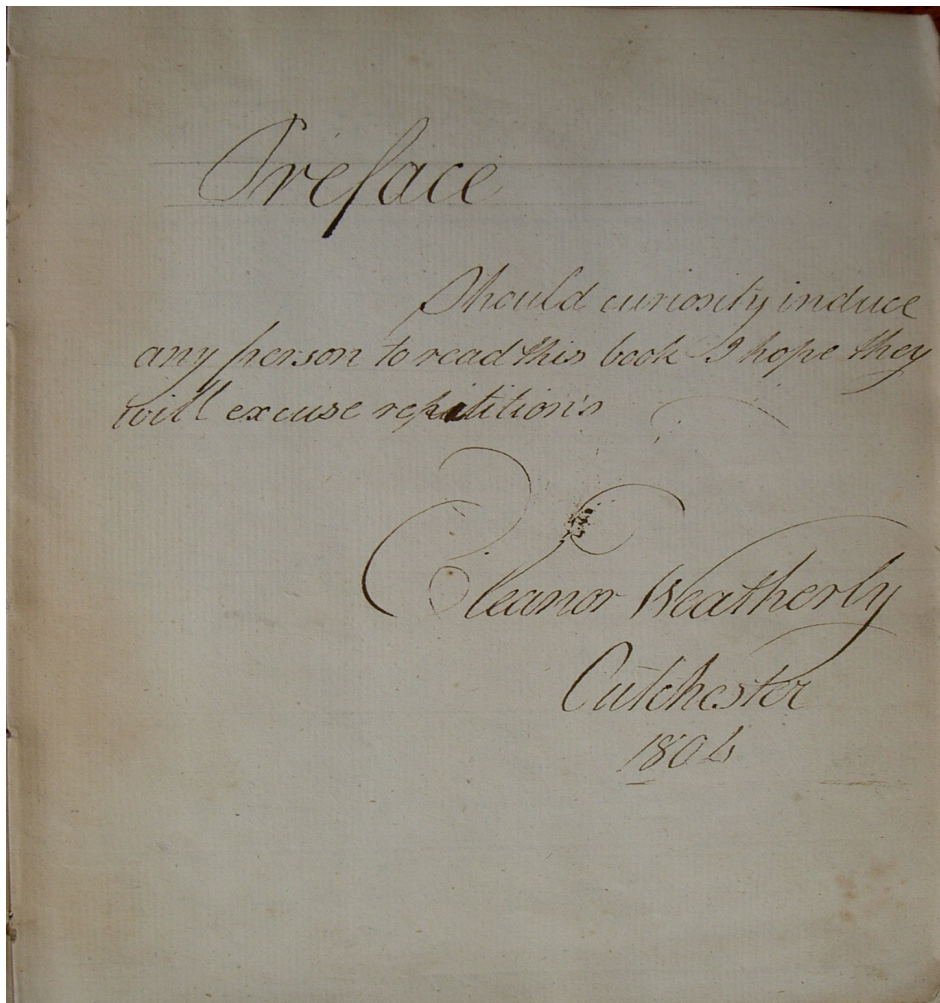 Preface
Should curiosity induce
any person to read this book I hope they
will excuse repitition's
Eleanor Weatherly
Cutchester
1804